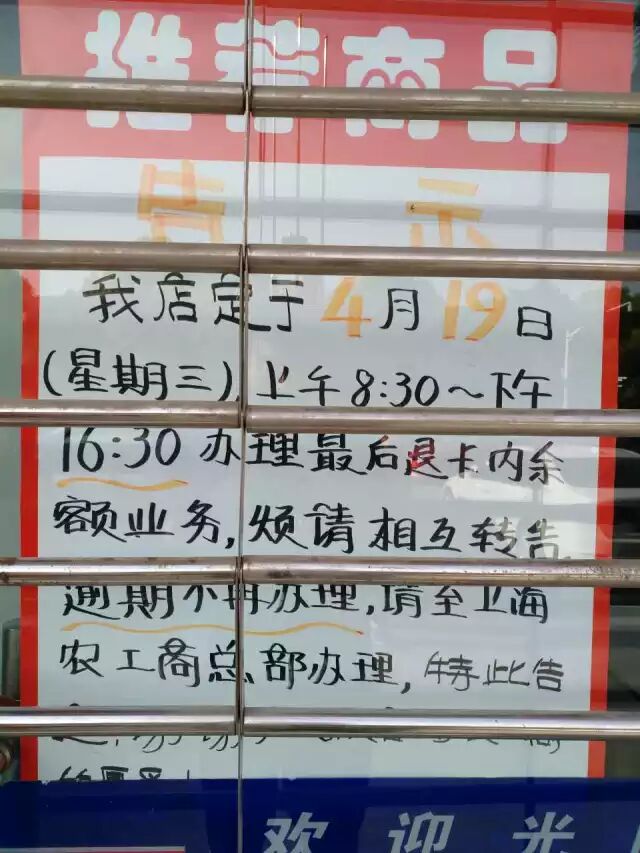 推荐商品
告 示
我店定于4月19日
(星期三)上午8:30~下午
16:30办理最后退卡内余
额业务,烦请相互转告,
逾期不再办理,请至上海
农工商总部办理,特此告
欢迎光